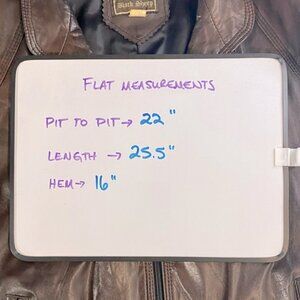 Black Sheep
FLAT MEASUREMENTS
PIT TO PIT → 22"
LENGTH → 25.5"
HEM → 16"